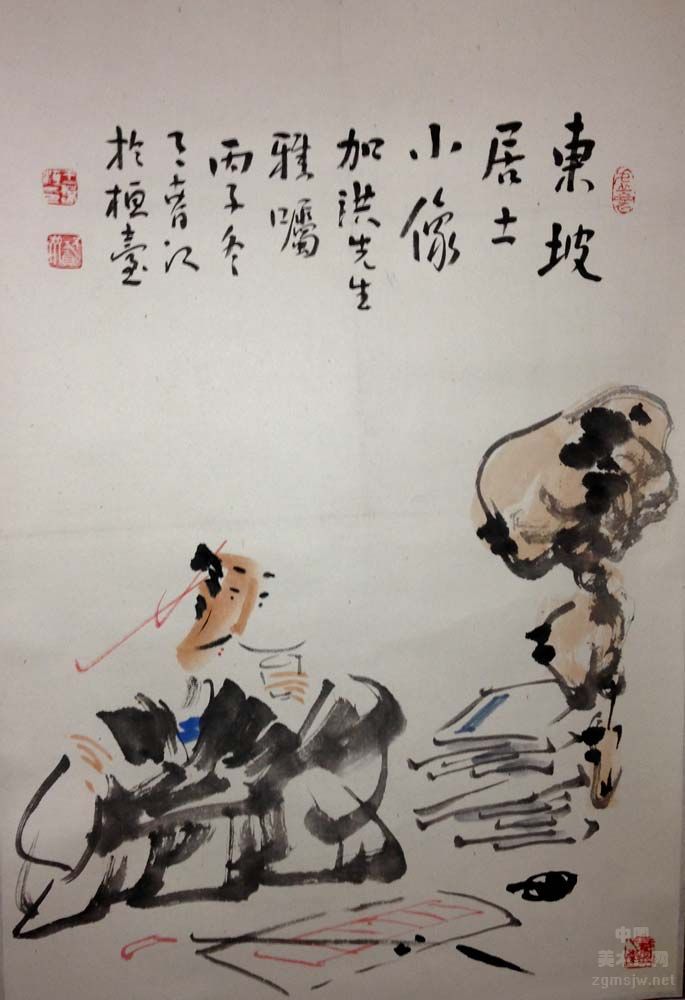 東坡
居士
小像
加洪先生
雅囑
丙子冬
於桓臺
中国
美术家网
zgmsjw.net